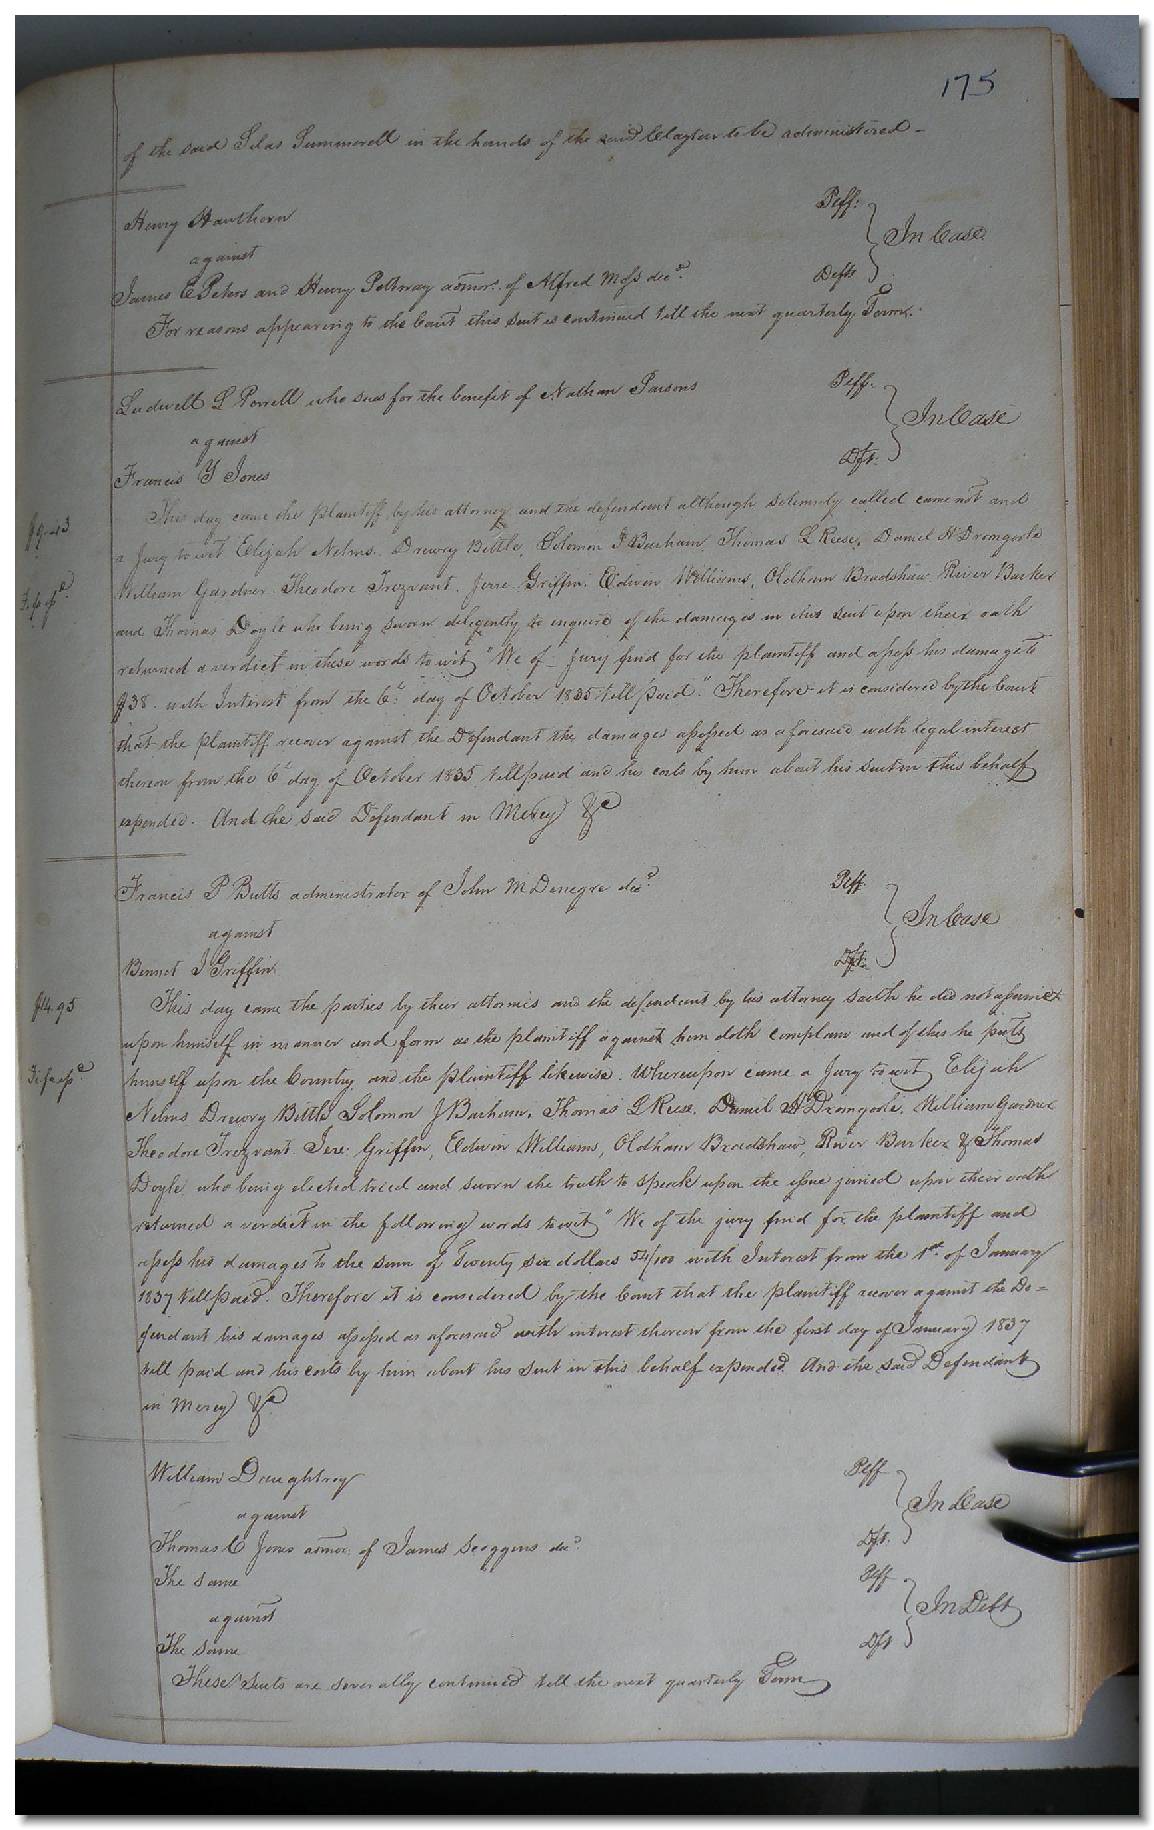 175
of the said Silas Summerell in the hands of the said Clayton to be administered -
Henry Hawthorn Plff:
against In Case
James E Peters and Henry Pethway admr. of Alfred Moss decd. Defts
For reasons appearing to the Court this suit is continued till the next quarterly Term.
Ludwell L Powell who sues for the benefit of Nathan Parsons Plff.
against In Case
Francis Y Jones Dft.
This day came the plaintiff by his attorney and the defendant although solemnly called came not and
$9.43
a Jury to wit Elijah Nelms. Drewry Bittle, Solomon J Barham, Thomas L Reese, Daniel H Dromgoole
William Gardner Theodore Trezvant. Jere. Griffin, Edwin Williams, Oldham Bradshaw River Barker
and Thomas Doyle who being sworn diligently to enquire of the damages in this suit upon their oath
returned a verdict in these words to wit "We of Jury find for the plaintiff and assess his damage to
$38. with Interest from the 6th day of October 1835 till paid." Therefore it is considered by the Court
that the plaintiff recover against the Defendant the damages assessed as aforesaid with legal interest
thereon from the 6th day of October 1835 till paid and his costs by him about his suit in this behalf
expended. And the said Defendant in Mercy &c
Francis P Butts administrator of John M Denegre decd. Plff.
against In Case
Bennet J Griffin Dft.
$14.95
This day came the parties by their attornies and the defendant by his attorney saith he did not assume
upon himself in manner and form as the plaintiff against him doth complain and of this he puts
himself upon the Country and the plaintiff likewise. Whereupon came a Jury to wit Elijah
Nelms Drewry Bittle Solomon J Barham, Thomas L Reese, Daniel H Dromgoole, William Gardner
Theodore Trezvant Jere. Griffin, Edwin Williams, Oldham Bradshaw, River Barker & Thomas
Doyle, who being elected tried and sworn the truth to speak upon the issue joined upon their oath
returned a verdict in the following words to wit "We of the jury find for the plaintiff and
assess his damages to the sum of Twenty six dollars 54/100 with Interest from the 1st of January
1837 till paid". Therefore it is considered by the Court that the plaintiff recover against the De=
fendant his damages assessed as aforesaid with interest thereon from the first day of January 1837
till paid and his costs by him about his suit in this behalf expended. And the said Defendant
in Mercy &c
William Daughtrey Plff
against In Case
Thomas C Jones admor. of James Scoggins decd. Dft.
The same Plff
against In Debt
The same Dft
These suits are severally continued till the next quarterly Term